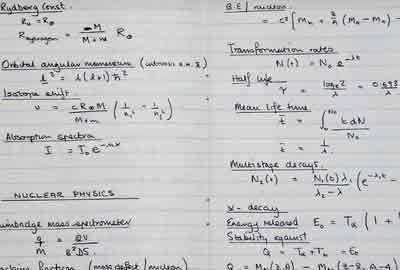 Rydberg Const.
R∞ = R∞
R hydrogen = M / M+m R∞
Orbital angular momentum (intrinsic a.m. s)
l² = l(l+1)ħ²
Isotope shift.
ν = cR∞M / M+m (1/n₁² - 1/n₂²)
Absorption spectra
I = I₀e^-nx
NUCLEAR PHYSICS
Bainbridge mass spectrometer
q/M = 2V / B²DS
(mass defect / nucleon)
B.E / nucleon
= c² [Mn + Z/A (MH - Mn) -
Transformation rates
N(t) = N₀ e^-λt
Half life
τ = loge2 / λ = 0.693 / λ
Mean life time
t̄ = ∫₀^N₀ t dN / N₀
t̄ = 1/λ
Multistage decays.
N₂(t) = N₁(0) λ₁ / λ₂ - λ₁ (e^-λ₁t -
α - decay
Energy released E₀ = Tα (1 +
Stability against
Q = Tα + Tb = E₀
Q = MN(Z,A) - MN(Z-2, A-4)